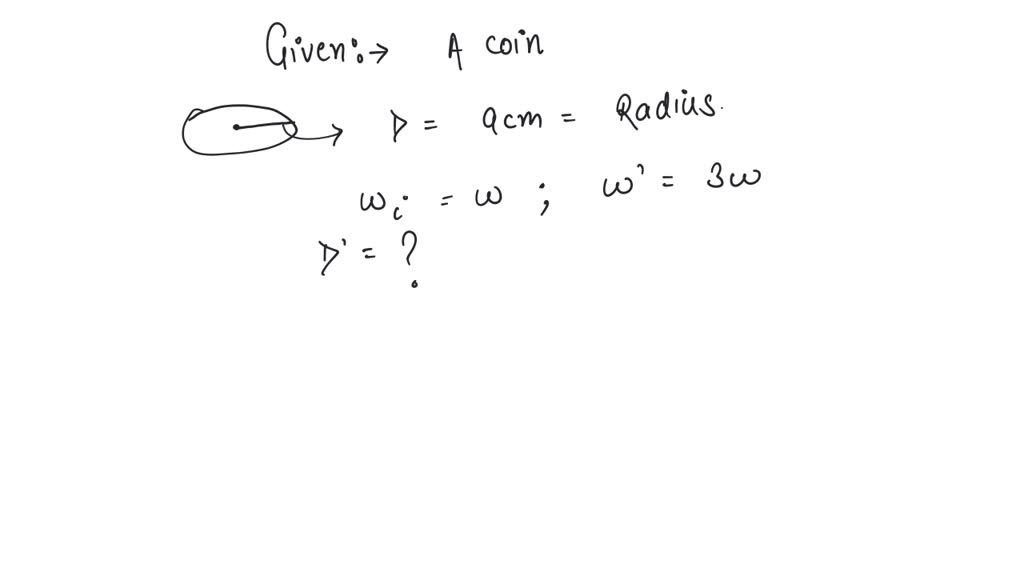 Given:→ A coin
r = 9cm = Radius.
ωi = ω ; ω' = 3ω
r' = ?